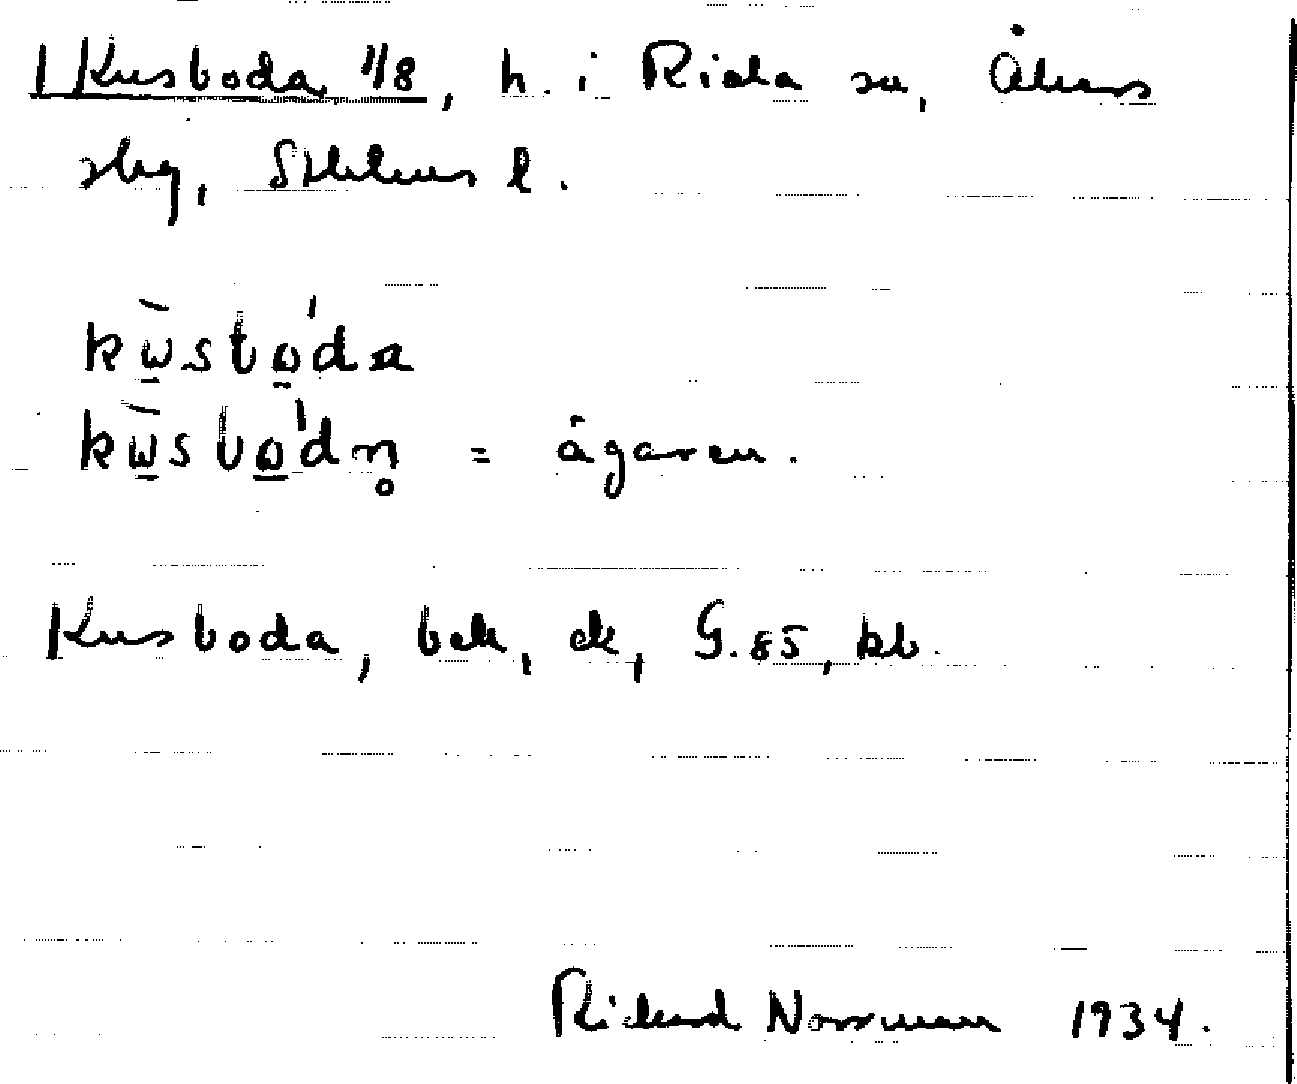 1 Kusboda 1/8, h. i Riala sn, Åkers
skg, Sthlms l.
kùsbo̲'da
kùsbo̲'dn̥ = ägaren.
Kusboda, bek, ek, G.85, kb.
Rickard Norrman 1934.